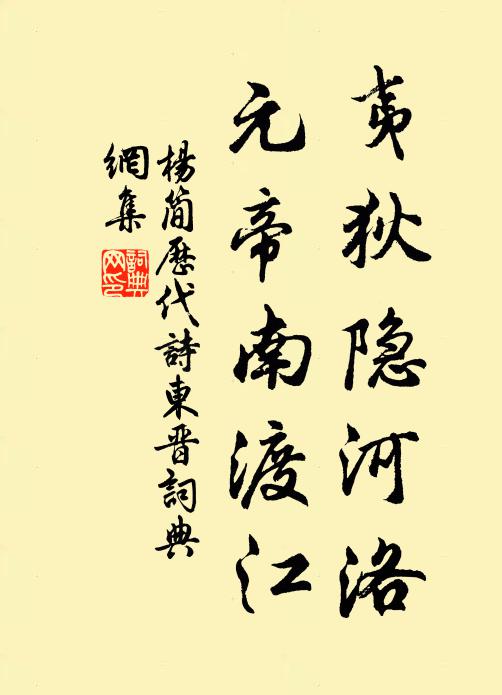 夷狄隐河洛
元帝南渡江
楊简歷代詩東晋詞典
網集
詞典
网印